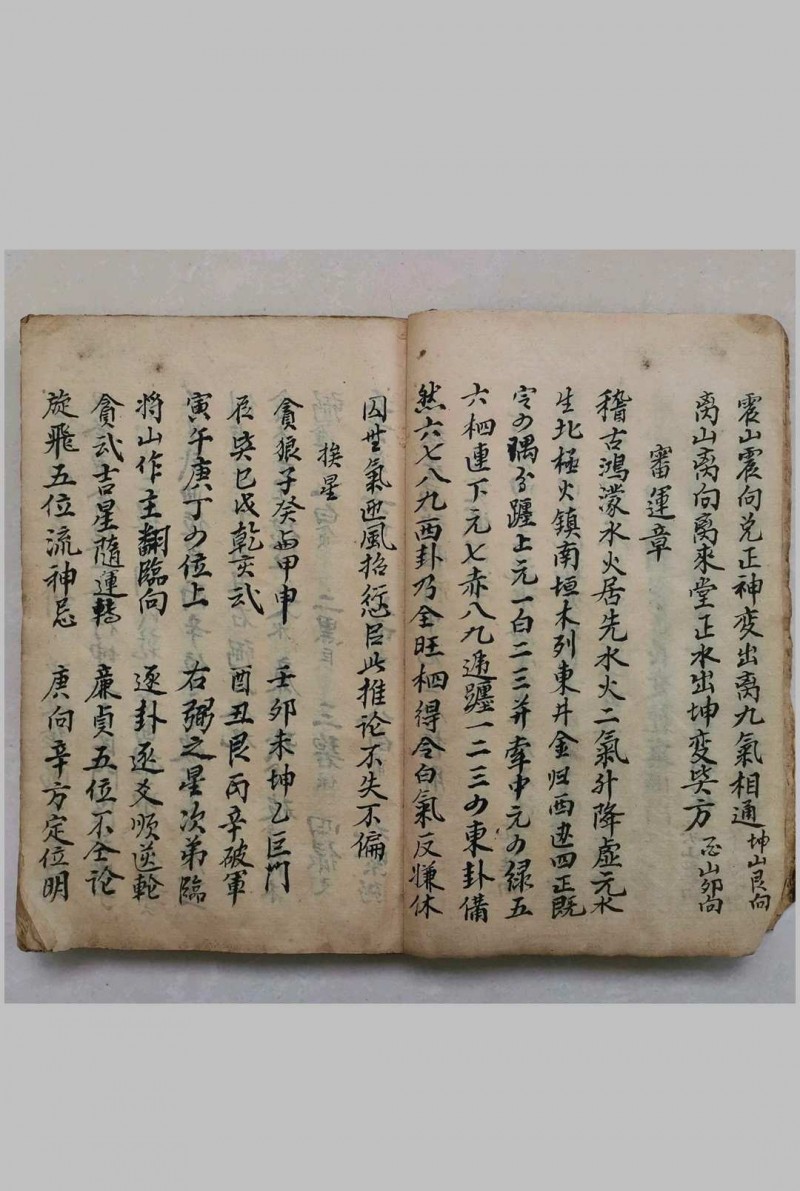 震山震向兑正神变出离九氣相通 坤山艮向
离山离向离來堂正水出坤变巽方 酉山卯向
審運章
稽古鴻濛水火居先水火二氣升降虚元水
生北極火鎮南垣木列東井金归西边四正既
定四隅分躔上元一白二三并牵中元四绿五
六栖連下元七赤八九遞躔一二三四東卦備
然六七八九西卦乃全旺栖得令白氣反嫌休
囚世氣迎風招愆臣此推论不失不偏
挨星
貪狼子癸與甲申 壬卯未坤乙巨門
辰巽巳戌乾亥武 酉丑艮丙辛破軍
寅午庚丁四位上 右弼之星次第臨
将山作主翻臨向 逐卦逐爻順逆輪
貪武吉星隨運轉 廉貞五位不全论
旋飛五位流神忌 庚向辛方定位明